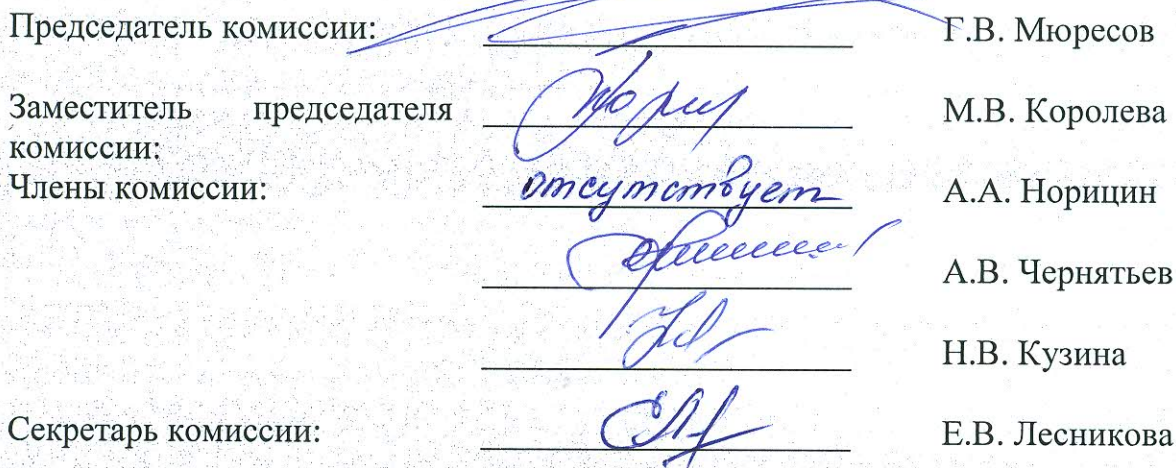 Председатель комиссии: Г.В. Мюресов
Заместитель председателя М.В. Королева
комиссии:
Члены комиссии: отсутствует А.А. Норицин
А.В. Чернятьев
Н.В. Кузина
Секретарь комиссии: Е.В. Лесникова